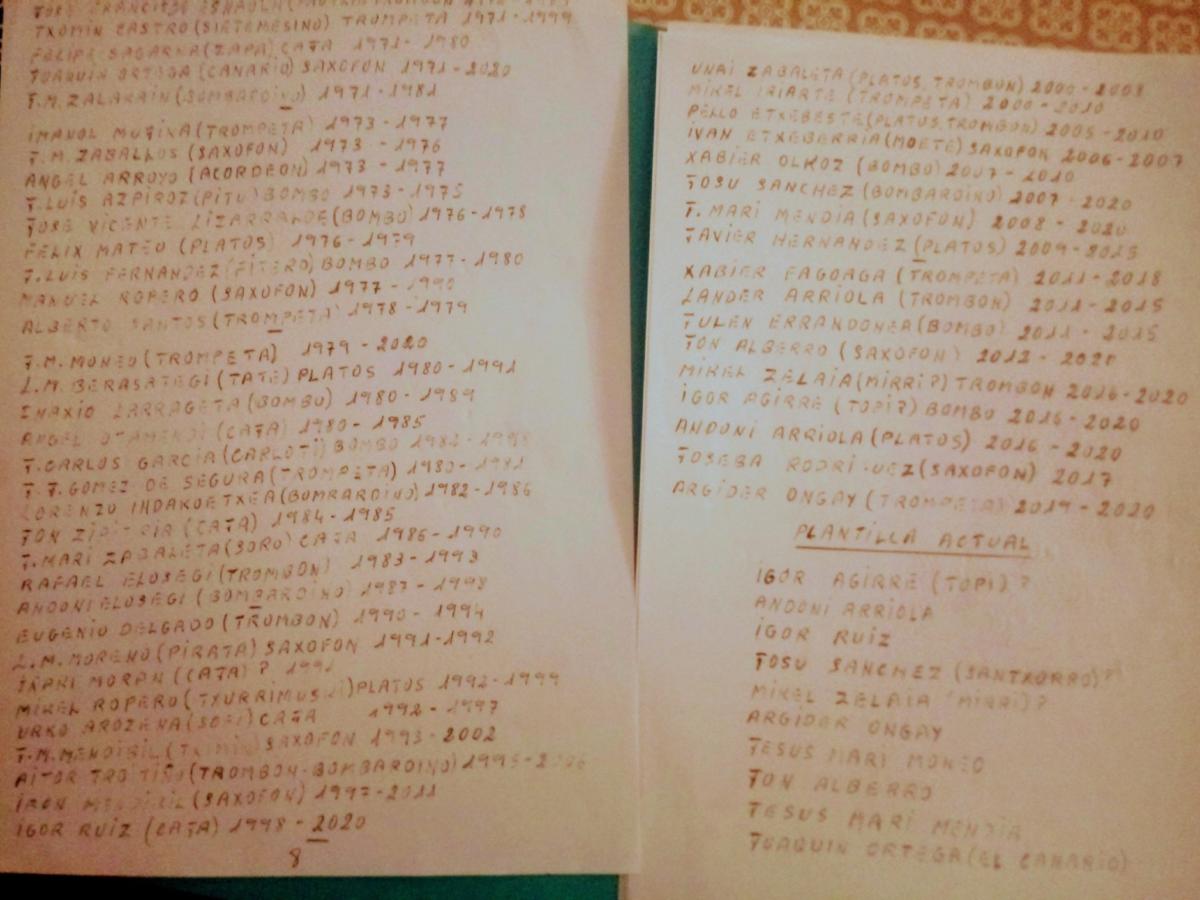 TXOMIN CASTRO (SIETEMESINO) TROMPETA 1971-1999
FELIPE SAGARNA (ZAPA) CAJA 1971-1980
JOAQUIN ORTEGA (CANARIO) SAXOFON 1971-2020
J.M. ZALAKAIN (BOMBARDINO) 1971-1981
IMANOL MUJIKA (TROMPETA) 1973-1977
J.M. ZABALLOS (SAXOFON) 1973-1976
ANGEL ARROYO (ACORDEON) 1973-1977
J.LUIS AZPIROZ (PITU) BOMBO 1973-1975
JOSE VICENTE LIZARRALDE (BOMBO) 1976-1978
FELIX MATEO (PLATOS) 1976-1979
J.LUIS FERNANDEZ (FITERO) BOMBO 1977-1980
MANUEL ROPERO (SAXOFON) 1977-1990
ALBERTO SANTOS (TROMPETA) 1978-1979
J.M. MONEO (TROMPETA) 1979-2020
L.M. BERASATEGI (TATE) PLATOS 1980-1991
INAXIO LARRAGETA (BOMBO) 1980-1989
ANGEL OTAMENDI (CAJA) 1980-1985
J.CARLOS GARCIA (CARLOTI) BOMBO
J.J. GOMEZ DE SEGURA (TROMPETA) 1980-1981
LORENZO INDAKOETXEA (BOMBARDINO) 1982-1986
JON (CAJA) 1984-1985
J.MARI ZABALETA (SORO) CAJA 1986-1990
RAFAEL ELOSEGI (TROMBON) 1983-1993
ANDONI ELOSEGI (BOMBARDINO) 1987-1998
EUGENIO DELGADO (TROMBON) 1990-1994
L.M. MORENO (PIRATA) SAXOFON 1991-1992
IÑAKI MORAN (CAJA) ? 1991
MIKEL ROPERO PLATOS 1992-1999
URKO AROZENA CAJA 1992-1997
J.M. MENDIBIL SAXOFON 1993-2002
AITOR TROITIÑO (TROMBON-BOMBARDINO)
IKON MENDIBIL (SAXOFON) 1997-2011
IGOR RUIZ (CAJA) 1998-2020
8
UNAI ZABALETA (PLATOS, TROMBON) 2000-2008
MIKEL IRIARTE (TROMPETA) 2000-2010
PELLO ETXEBESTE (PLATOS, TROMBON) 2005-2010
IVAN ETXEBERRIA (MOETE) SAXOFON 2006-2007
XABIER OLKOZ (BOMBO) 2007-2010
JOSU SANCHEZ (BOMBARDINO) 2007-2020
J. MARI MENDIA (SAXOFON) 2008-2020
JAVIER HERNANDEZ (PLATOS) 2009-2015
XABIER FAGOAGA (TROMPETA) 2011-2018
LANDER ARRIOLA (TROMBON) 2011-2015
JULEN ERRANDONEA (BOMBO) 2011-2015
JON ALBERRO (SAXOFON) 2012-2020
MIKEL ZELAIA (MIRRI?) TROMBON 2016-2020
IGOR AGIRRE (TOPI?) BOMBO 2016-2020
ANDONI ARRIOLA (PLATOS) 2016-2020
JOSEBA RODRIGUEZ (SAXOFON) 2017
ARGIDER ONGAY (TROMPETA) 2019-2020
PLANTILLA ACTUAL
IGOR AGIRRE (TOPI) ?
ANDONI ARRIOLA
IGOR RUIZ
JOSU SANCHEZ (SANTXORRO)?
MIKEL ZELAIA (MIRRI)?
ARGIDER ONGAY
JESUS MARI MONEO
JON ALBERRO
JESUS MARI MENDIA
JOAQUIN ORTEGA (EL CANARIO)